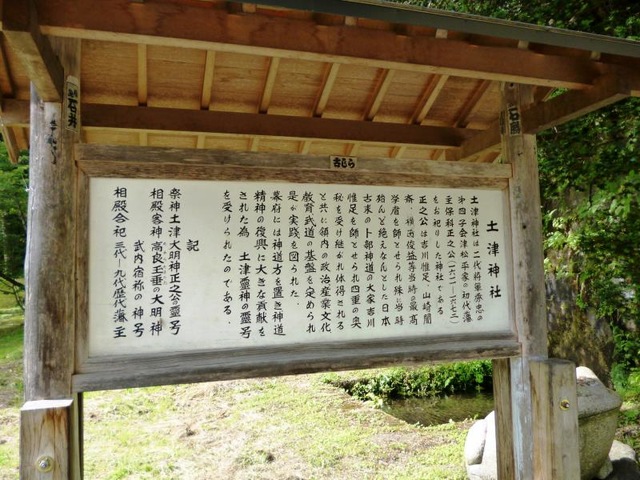 土津神社
土津神社は二代将軍秀忠の
第四子会津松平家の初代藩
主保科正之公(一六一一-一六七二)
をお祀りした神社である
正之公は吉川惟足、山崎闇
斎、横田俊益等当時の最高
学者を師とせられ殊に当時
殆んど絶えなんとした日本
古来の卜部神道の大家吉川
惟足を師とせられ四重の奥
秘を受け継がれ体得される
と共に領内の政治産業文化
教育武道の基盤を定められ
是が実践を図られた.
幕府には神道方を置き神道
精神の復興に大きな貢献を
された為、土津霊神の霊号
を受けられたのである.
記
祭神土津大明神正之公の霊号
相殿客神高良玉垂の大明神
武内宿祢の神号
相殿合祀三代-九代歴代藩主